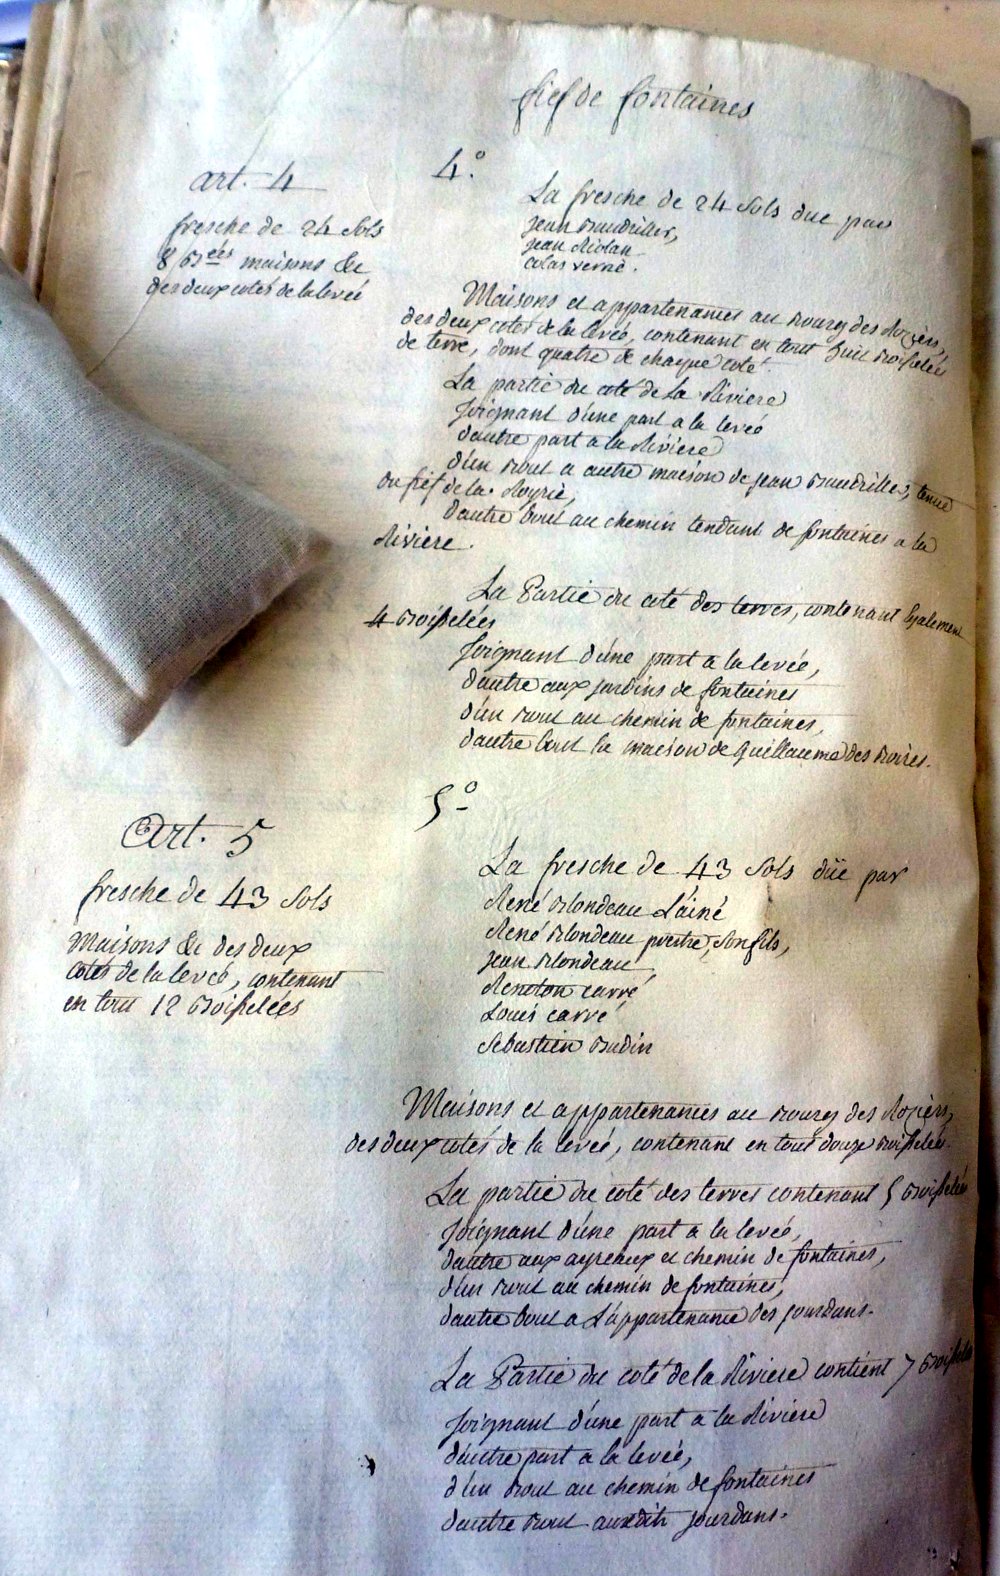 fief de fontaines
art. 4
fresche de 24 sols
8 B.ées maisons &c
des deux cotés de la levée
4.°
La fresche de 24 sols due par
jean Baudriller,
jean
colas verné.
Maisons et appartenances au Bourg des Roziers,
des deux cotés de la levée, contenant en tout huit Boisselées
de terre, dont quatre de chaque coté.
La partie du coté de La Riviere
joignant d'une part a la levée
d'autre part a la Riviere
d'un Bout a autre maison de jean Baudriller, tenue
du fief de la Royrie,
d'autre bout au chemin tendant de fontaines a la
Riviere.
La Partie du coté des terres, contenant Egalement
4 Boisselées
joignant d'une part a la levée,
d'autre aux jardins de fontaines
d'un Bout au chemin de fontaines,
d'autre bout la maison de Guillaume des Boires.
Art. 5
fresche de 43 sols
Maisons &c des deux
cotés de la levée, contenant
en tout 12 Boisselées
5°
La fresche de 43 sols düe par
René Blondeau L'ainé
René Blondeau prestre, son fils,
jean Blondeau,
carré
Louis carré
Sebastien Budin
Maisons et appartenances au Bourg des Roziers,
des deux cotés de la levée, contenant en tout douze Boisselées.
La partie du coté des terres contenant 5 Boisselées
joignant d'une part a la levée,
d'autre aux ayreaux et chemin de fontaines,
d'un Bout au chemin de fontaines,
d'autre bout a L'appartenance des jourdans.
La Partie du coté de la Riviere contient 7 Boisselées
joignant d'une part a la Riviere
d'autre part a la levée,
d'un Bout au chemin de fontaines
d'autre Bout auxdits jourdans.